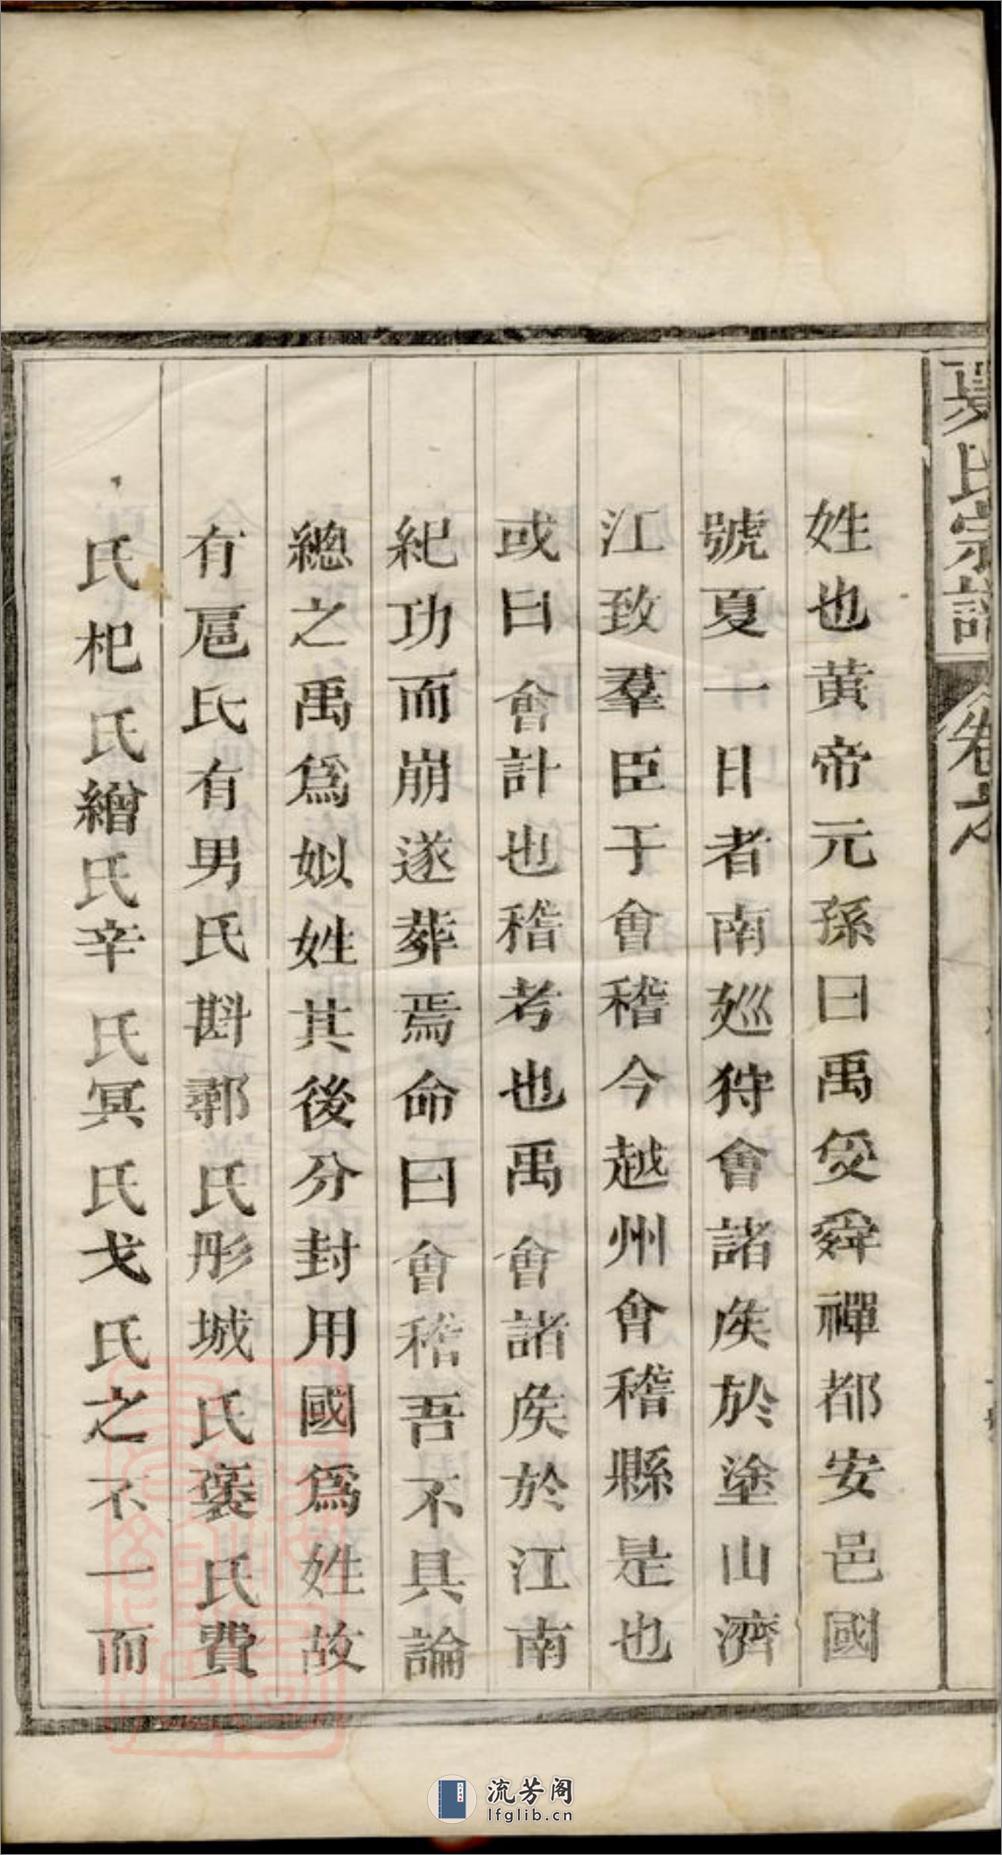 夏氏宗譜
卷之
姓也黃帝元孫曰禹受舜禪都安邑國
號夏一日者南廵狩會諸矦於塗山濟
江致羣臣于會稽今越州會稽縣是也
或曰會計也稽考也禹會諸矦於江南
紀功而崩遂葬焉命曰會稽吾不具論
總之禹爲姒姓其後分封用國爲姓故
有扈氏有男氏斟鄩氏彤城氏褒氏費
氏杞氏繒氏辛氏冥氏戈氏之不一而
流芳阁
lfglib.cn